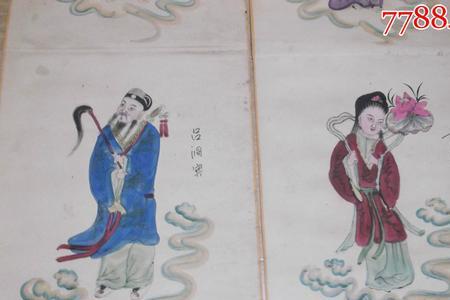 7788
吕洞賓